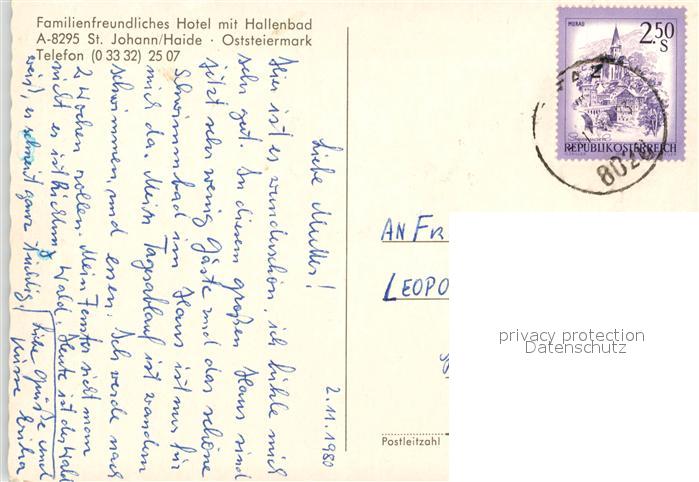 Familienfreundliches Hotel mit Hallenbad
A-8295 St. Johann/Haide · Oststeiermark
Telefon (0 33 32) 25 07
2.11.1980
Liebe Mutter!
Hier ist es wunderschön, ich fühle mich
sehr gut. In diesem großen Haus sind
jetzt sehr wenig Gäste und das schöne
Schwimmbad im Haus ist nur für
mich da. Mein Tagesablauf ist wandern
schwimmen, und essen. Ich werde nach
2 Wochen rollen. Mein Fenster sieht man
nicht es ist Richtung Wald. Heute ist der Wald
weiß, es schneit ganz richtig!
Liebe Grüße und
Küsse
MURAU
2.50
S
REPUBLIK ÖSTERREICH
AZ
8020
AN FR
LEOPO
Postleitzahl
privacy protection
Datenschutz